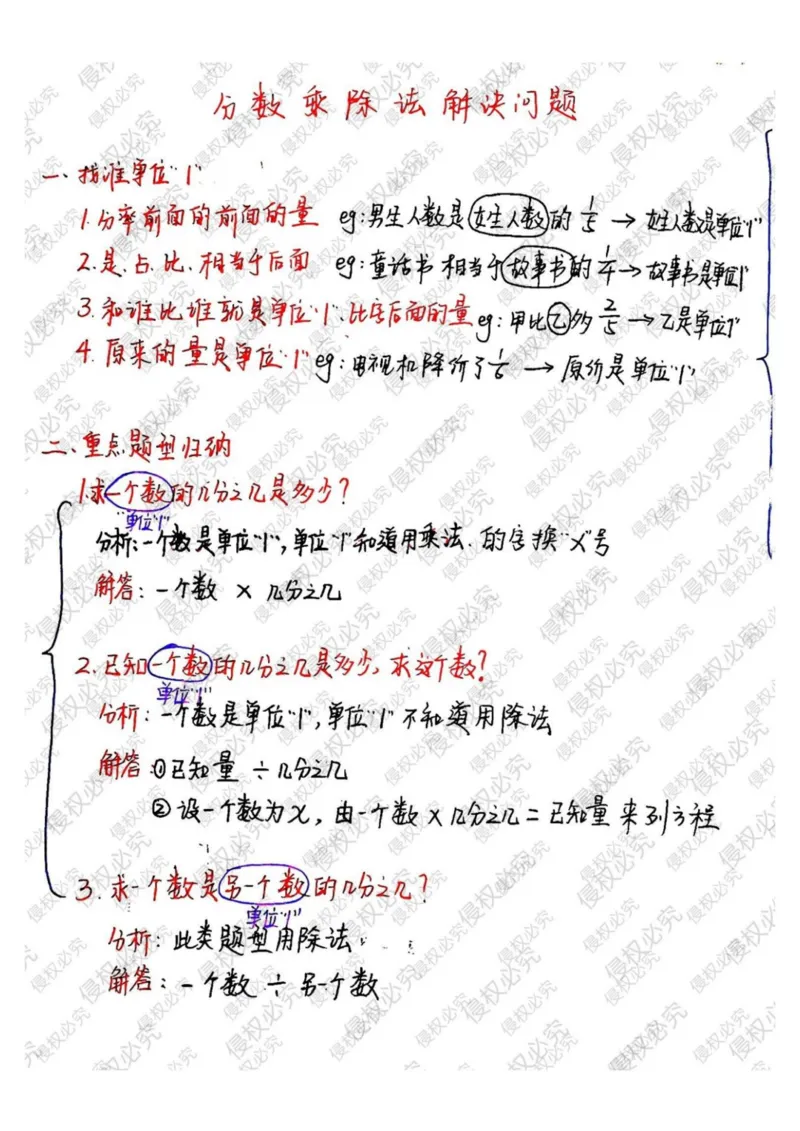 分数乘除法解决问题
一、找准单位"1"
1.分率前面的前面的量 eg:男生人数是女生人数的1/5 → 女生人数是单位"1"
2.是、占、比、相当于后面 eg:童话书相当于故事书的1/4 → 故事书是单位"1"
3.和谁比谁就是单位"1"、比字后面的量 eg:甲比乙多2/5 → 乙是单位"1"
4.原来的量是单位"1" eg:电视机降价了1/6 → 原价是单位"1"
二、重点题型归纳
1.求一个数的几分之几是多少?
"单位"1"
分析:一个数是单位"1",单位"1"知道用乘法.的字换"×"号
解答:一个数 × 几分之几
2.已知一个数的几分之几是多少,求这个数?
单位"1"
分析:一个数是单位"1",单位"1"不知道用除法
解答:①已知量 ÷ 几分之几
②设一个数为x,由一个数×几分之几=已知量 来列方程
3.求一个数是另一个数的几分之几?
单位"1"
分析:此类题型用除法
解答:一个数 ÷ 另一个数
侵权必究